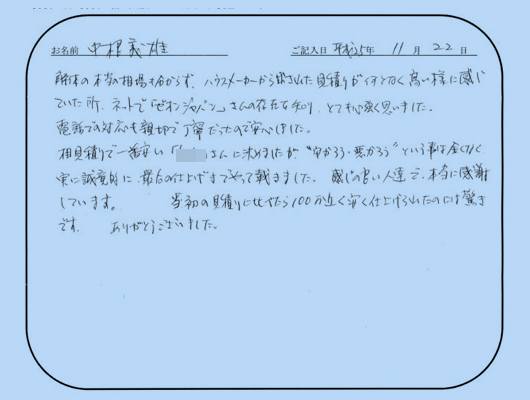 お名前 中根義雄 ご記入日 平成25年 11月 22日
解体の本当の相場が分からず、ハウスメーカーから出された見積りが何となく高い様に感じ
ていた所、ネットで「ゼオンジャパン」さんの存在を知り、とても心強く思いました。
電話での対応も親切で丁寧だったので安心しました。
相見積りで一番安い「 」さんに決めましたが"安かろう・悪かろう"という事は全くなく
実に誠意的に、最后の仕上げまでやって戴きました。感じの良い人達で、本当に感謝
しています。 当初の見積りに比べたら100万近く安く仕上げられたのには驚き
です。 ありがとうございました。